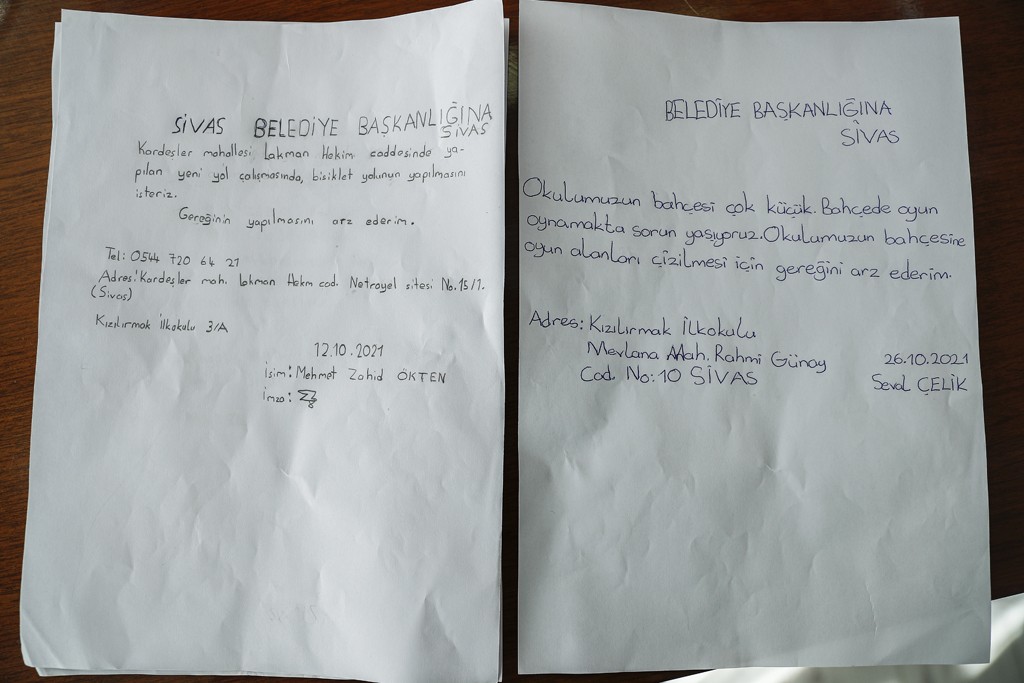 SİVAS BELEDİYE BAŞKANLIĞINA
SİVAS
Kardeşler mahallesi Lakman Hekim caddesinde ya-
pılan yeni yol çalışmasında, bisiklet yolunun yapılmasını
isteriz.
Gereğinin yapılmasını arz ederim.
Tel: 0544 720 64 21
Adres: Kardeşler mah. Lakman Hekm cad. Netrayel sitesi No.15/1.
(Sivas)
Kızılırmak İlkokulu 3/A
12.10.2021
İsim: Mehmet Zahid ÖKTEN
İmza:
BELEDİYE BAŞKANLIĞINA
SİVAS
Okulumuzun bahçesi çok küçük. Bahçede oyun
oynamakta sorun yaşıyoruz. Okulumuzun bahçesine
oyun alanları çizilmesi için gereğini arz ederim.
Adres: Kızılırmak İlkokulu
Mevlana Mah. Rahmi Günay
Cad. No: 10 SİVAS
26.10.2021
Seval ÇELİK